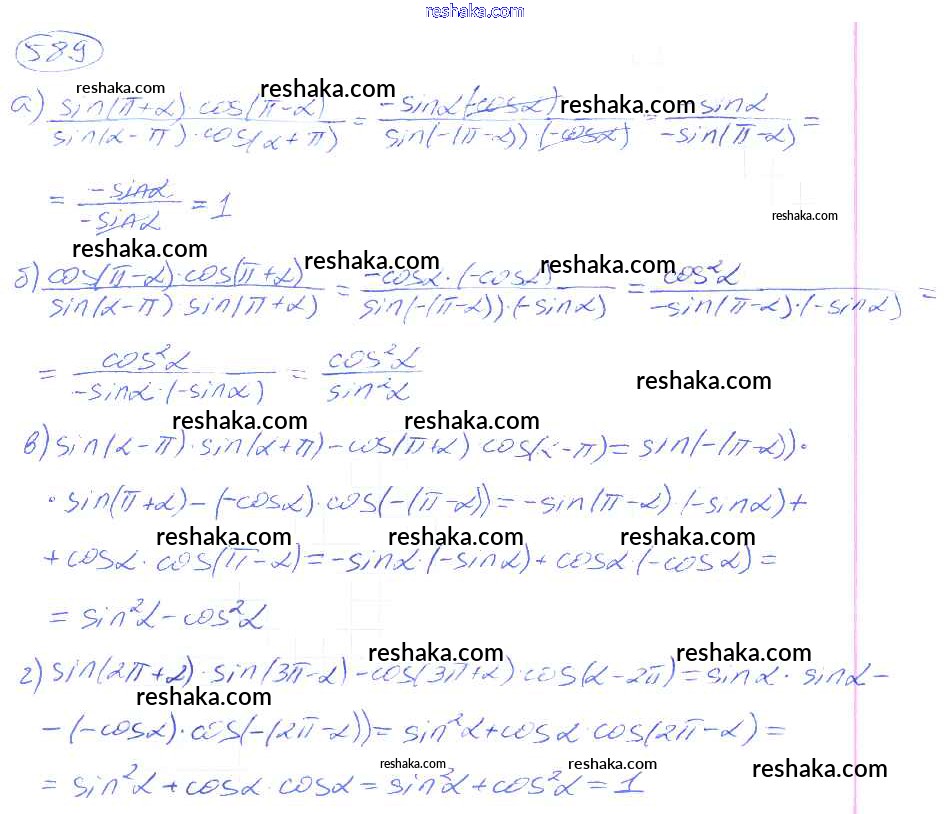 reshaka.com
589
reshaka.com reshaka.com reshaka.com reshaka.com
а) sin(π+α) · cos(π-α) / sin(α-π) · cos(α+π) = -sinα(-cosα) / sin(-(π-α))·(-cosα) = -sinα / -sin(π-α) =
= -sinα / -sinα = 1
reshaka.com
reshaka.com reshaka.com reshaka.com
б) cos(π-α)·cos(π+α) / sin(α-π) sin(π+α) = -cosα·(-cosα) / sin(-(π-α))·(-sinα) = cos²α / -sin(π-α)·(-sinα) =
= cos²α / -sinα·(-sinα) = cos²α / sin²α
reshaka.com
reshaka.com reshaka.com
в) sin(α-π)·sin(α+π)-cos(π+α) cos(α-π)= sin(-(π-α))·
· sin(π+α)-(-cosα)·cos(-(π-α))= -sin(π-α)·(-sinα)+
reshaka.com reshaka.com reshaka.com
+ cosα· cos(π-α)= -sinα·(-sinα)+ cosα·(-cosα)=
= sin²α-cos²α
reshaka.com reshaka.com
г) sin(2π+α)·sin(3π-α)-cos(3π+α)·cos(α-2π)= sinα· sinα-
reshaka.com
-(-cosα)·cos(-(2π-α))= sin²α+cosα cos(2π-α)=
reshaka.com reshaka.com reshaka.com
= sin²α+cosα·cosα= sin²α+cos²α=1